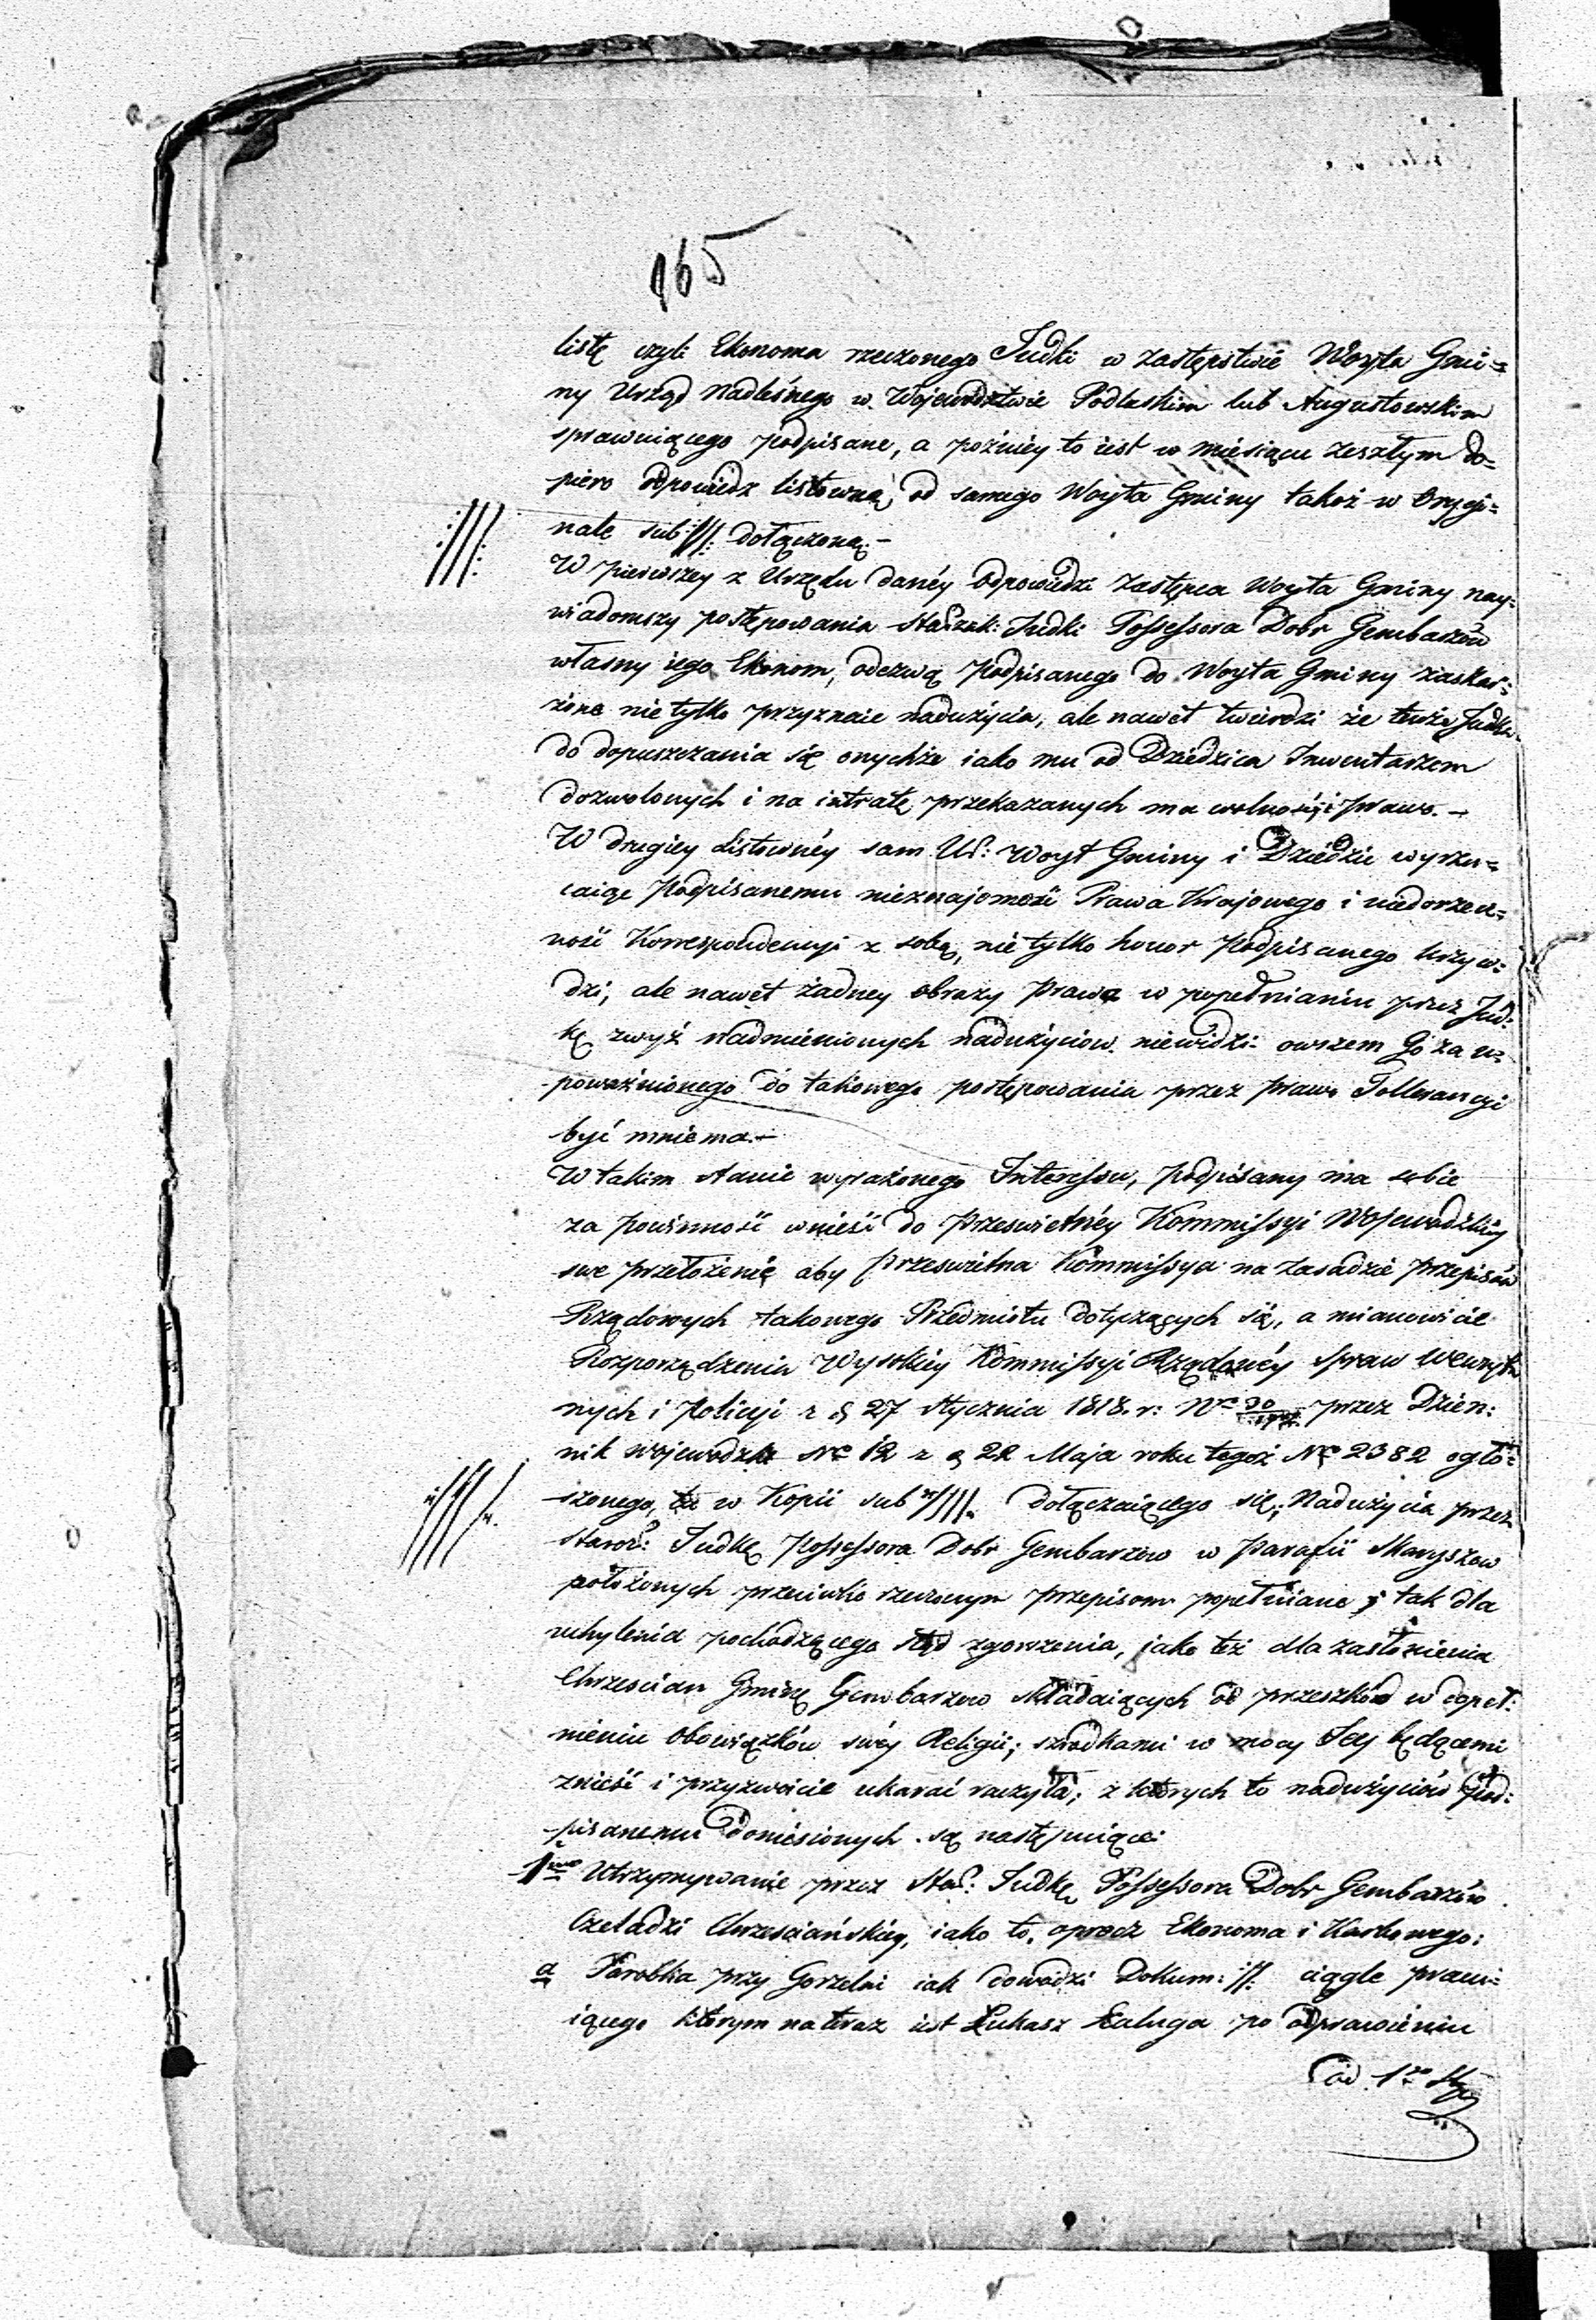 165
listę czyli Ekonoma rzeczonego Judki w zastępstwie Woyta Gmi=
ny Urząd Nadleśnego w Wojewodztwie Podlaskim lub Augustowskim
sprawuiącego podpisane, a poźniey to iest w miesiącu zeszłym do=
piero odpowiedz listowną od samego Woyta Gminy takoż w Orygi=
nale sub :///: dołączoną.-
W pierwszey z Urzędu daney odpowiedzi zastępca Woyta Gminy nay=
wiadomszy postępowania Starzak: Judki Possessora Dobr Gembarzów
własny iego Ekonom, odezwą podpisanego do Woyta Gminy zaskar=
żone nie tylko przyznaie nadużycia, ale nawet twierdzi że tenże Judka
do dopuszczania się onychże iako mu od Dziedzica Inwentarzem
dozwolonych i na intratę przekazanych ma wolność i prawo.-
W drugiey Listowney sam Ur: Woyt Gminy i Dziedzic wyrzu=
caiąc podpisanemu nieznajomość Prawa Krajowego i niedorzecz=
ność Korrespondencyi z sobą, nie tylko honor podpisanego krzyw=
dzi, ale nawet żadney obrazy prawa w popełnianiu przez Jud=
kę zwyż nadmienionych nadużyciow niewidzi: owszem Go za u=
poważnionego do takowego postępowania przez prawo Tollerancyi
być mniema.-
W takim stanie wyrażonego Interessu, podpisany ma sobie
za powinność wnieść do Przeswietney Kommissyi Wojewodzkiey
swe przełożenie aby Przeswietna Kommissya na zasadzie przepisów
Rządowych takowego Przedmiotu dotyczących się, a mianowicie
Rozporządzenia Wysokiey Kommissyi Rządowey Spraw Wewnętrz
nych i Policyi z d 27 Stycznia 1818. r: No 30 przez Dzien:
nik wojewodzki No 12 z d 22 Maja roku tegoż No 2382 ogło=
szonego, tu w Kopii sub ////. dołączaiącego się; Nadużycia przez
Staroz: Judkę Possessora Dobr Gembarzow w Parafii Skaryszew
położonych przeciwko rzeczonym przepisom popełniane i tak dla
uchylenia pochodzącego stąd zgorszenia, jako też dla zasłonienia
Chrześcian Gminę Gembarzow składaiących od przeszków w dopeł:
nieniu obowiązków swéy Religii; szrodkami w mocy Jey będącemi
znieść i przyzwoicie ukarać raczyła; z ktorych to nadużyciów pod:
pisanemu doniesionych są następuiące:
1mo Utrzymywanie przez Star: Judkę Possessora Dobr Gembarzów
Czeladzi Chrześciańskiey, iako to, oprocz Ekonoma i Karbowego:
a Parobka przy Gorzelni iak dowodzi Dokum: //: ciągle pracu=
iącego którym na teraz iest Łukasz Kaluga po odprawieniu
od 1go Sty